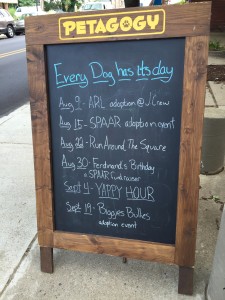 PETAGOGY
Every Dog has its day
Aug 9 - ARL adoption @ J Crew
Aug 15 - SPAAR adoption event
Aug 22 - Run Around The Square
Aug 30 - Ferdinand's Birthday
a SPAAR fundraiser
Sept 4 - YAPPY HOUR
Sept 19 - Biggies Bullies
adoption event